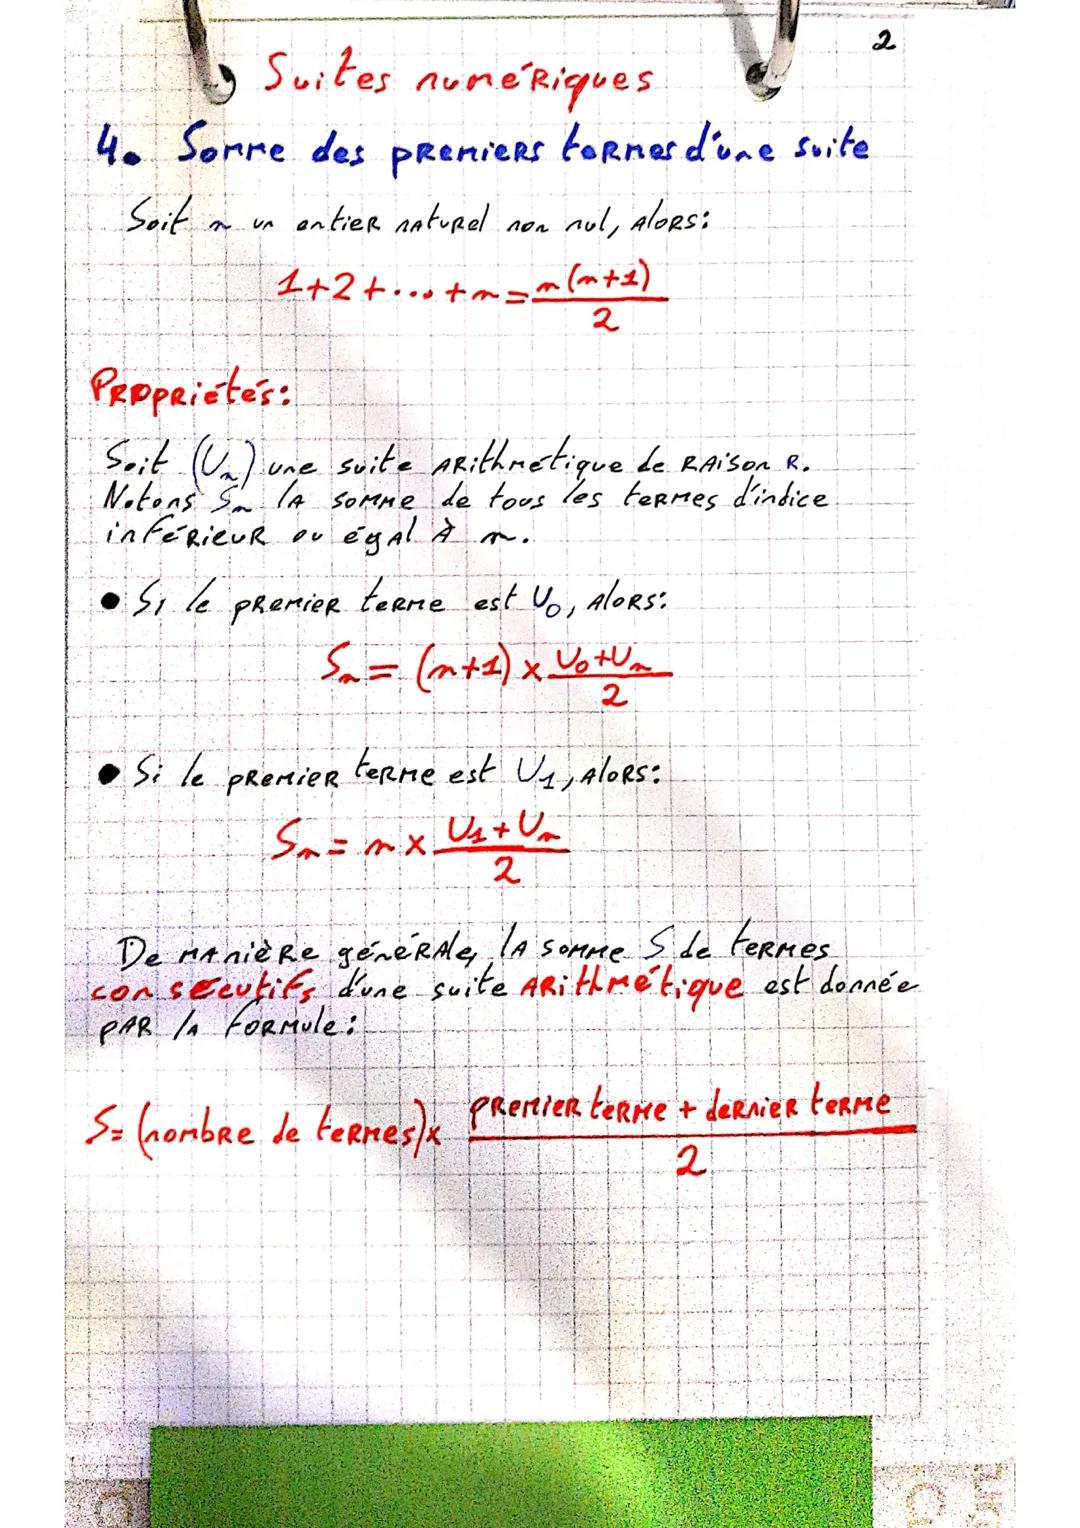 2
Suites numériques
4. Somme des premiers termes d'une suite
Soit n un entier naturel non nul, alors:
1+2+...+n = n(n+1)
2
Propriétés:
Soit (Un) une suite arithmétique de raison R.
Notons Sn la somme de tous les termes d'indice
inférieur ou égal à n.
• Si le premier terme est U0, alors:
Sn = (n+1) × U0+Un
2
• Si le premier terme est U1, alors:
Sn = n × U1+Un
2
De manière générale, la somme S de termes
consécutifs d'une suite arithmétique est donnée
par la formule:
S= (nombre de termes)× premier terme + dernier terme
2